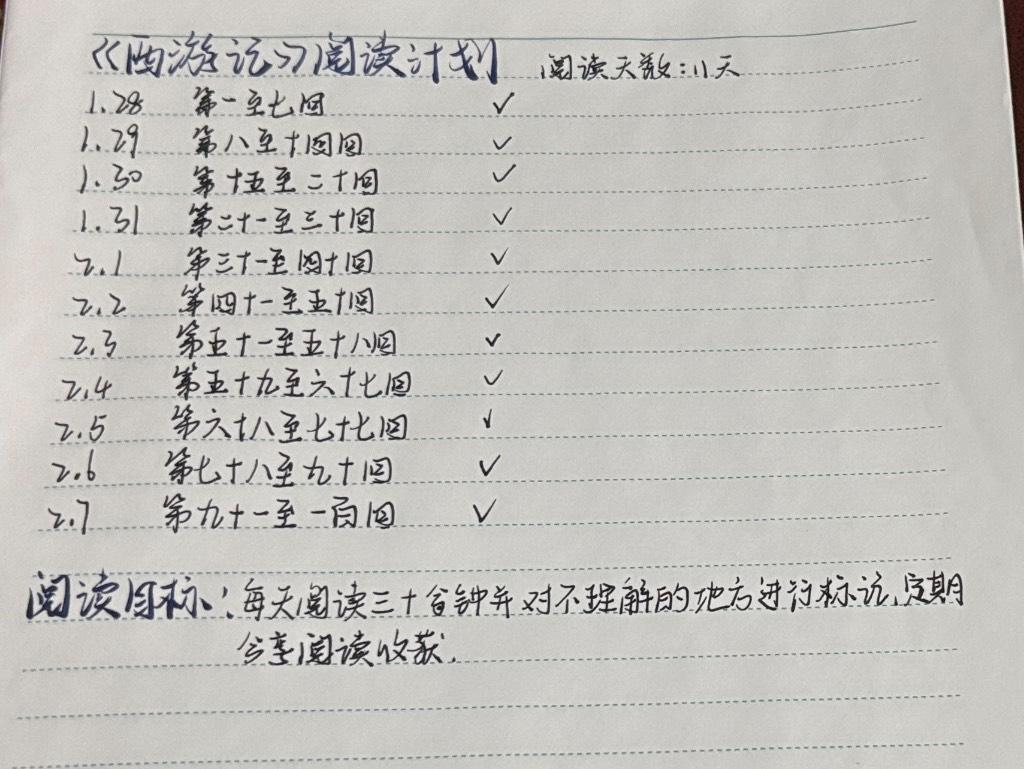 《西游记》阅读计划 阅读天数:11天
1.28 第一至七回 ✓
1.29 第八至十四回 ✓
1.30 第十五至二十回 ✓
1.31 第二十一至三十回 ✓
2.1 第三十一至四十回 ✓
2.2 第四十一至五十回 ✓
2.3 第五十一至五十八回 ✓
2.4 第五十九至六十七回 ✓
2.5 第六十八至七十七回 ✓
2.6 第七十八至九十回 ✓
2.7 第九十一至一百回 ✓
阅读目标:每天阅读三十分钟并对不理解的地方进行标记,定期
分享阅读收获.